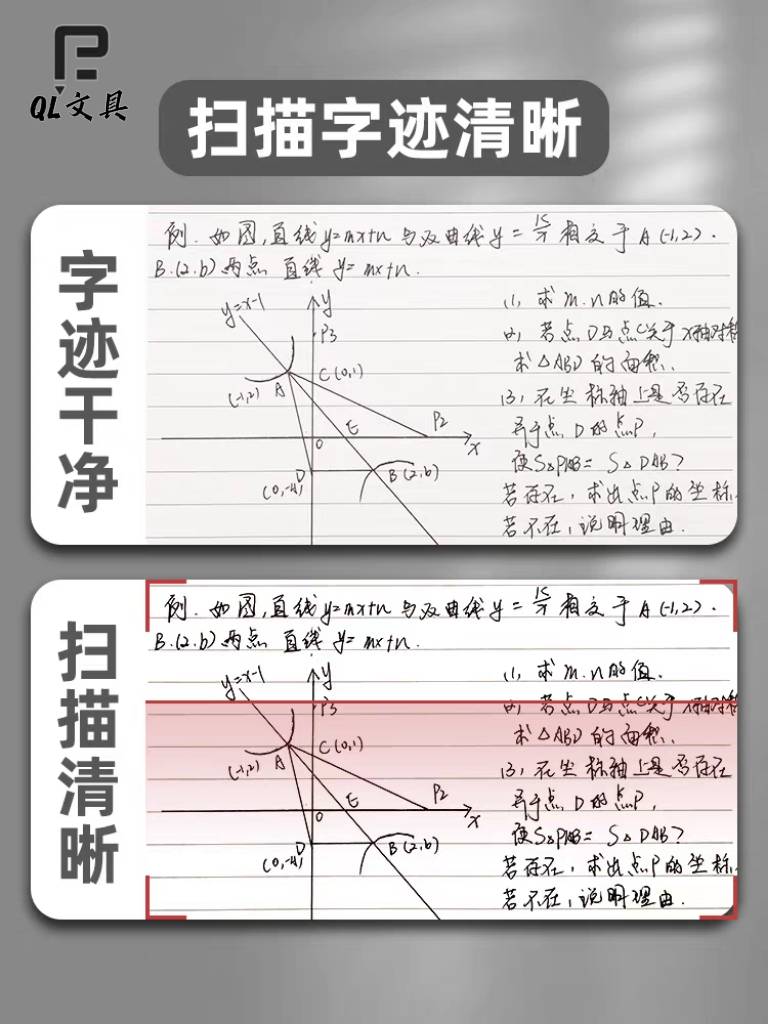 QL文具
扫描字迹清晰
字迹干净
例. 如图,直线y=mx+n与双曲线y=k/x相交于A(-1,2).
B.(2,b)两点 直线y=mx+n.
y=x-1
y
P3
C(0,1)
(-1,2)
A
P2
E
0
x
D
B(2,b)
(0,-1)
(1), 求m.n的值.
(2), 若点D与点C关于x轴对称
求△ABD的面积.
(3), 在坐标轴上是否存在
异于点D的点P,
使S△PAB= S△DAB?
若存在,求出点P的坐标.
若不在,说明理由.
扫描清晰
例. 如图,直线y=mx+n与双曲线y=k/x相交于A(-1,2).
B.(2,b)两点 直线y=mx+n.
y=x-1
y
P3
C(0,1)
(-1,2)
A
P2
E
0
x
D
B(2,b)
(0,-1)
(1), 求m.n的值.
(2), 若点D与点C关于x轴对称
求△ABD的面积.
(3), 在坐标轴上是否存在
异于点D的点P,
使S△PAB= S△DAB?
若存在,求出点P的坐标.
若不在,说明理由.